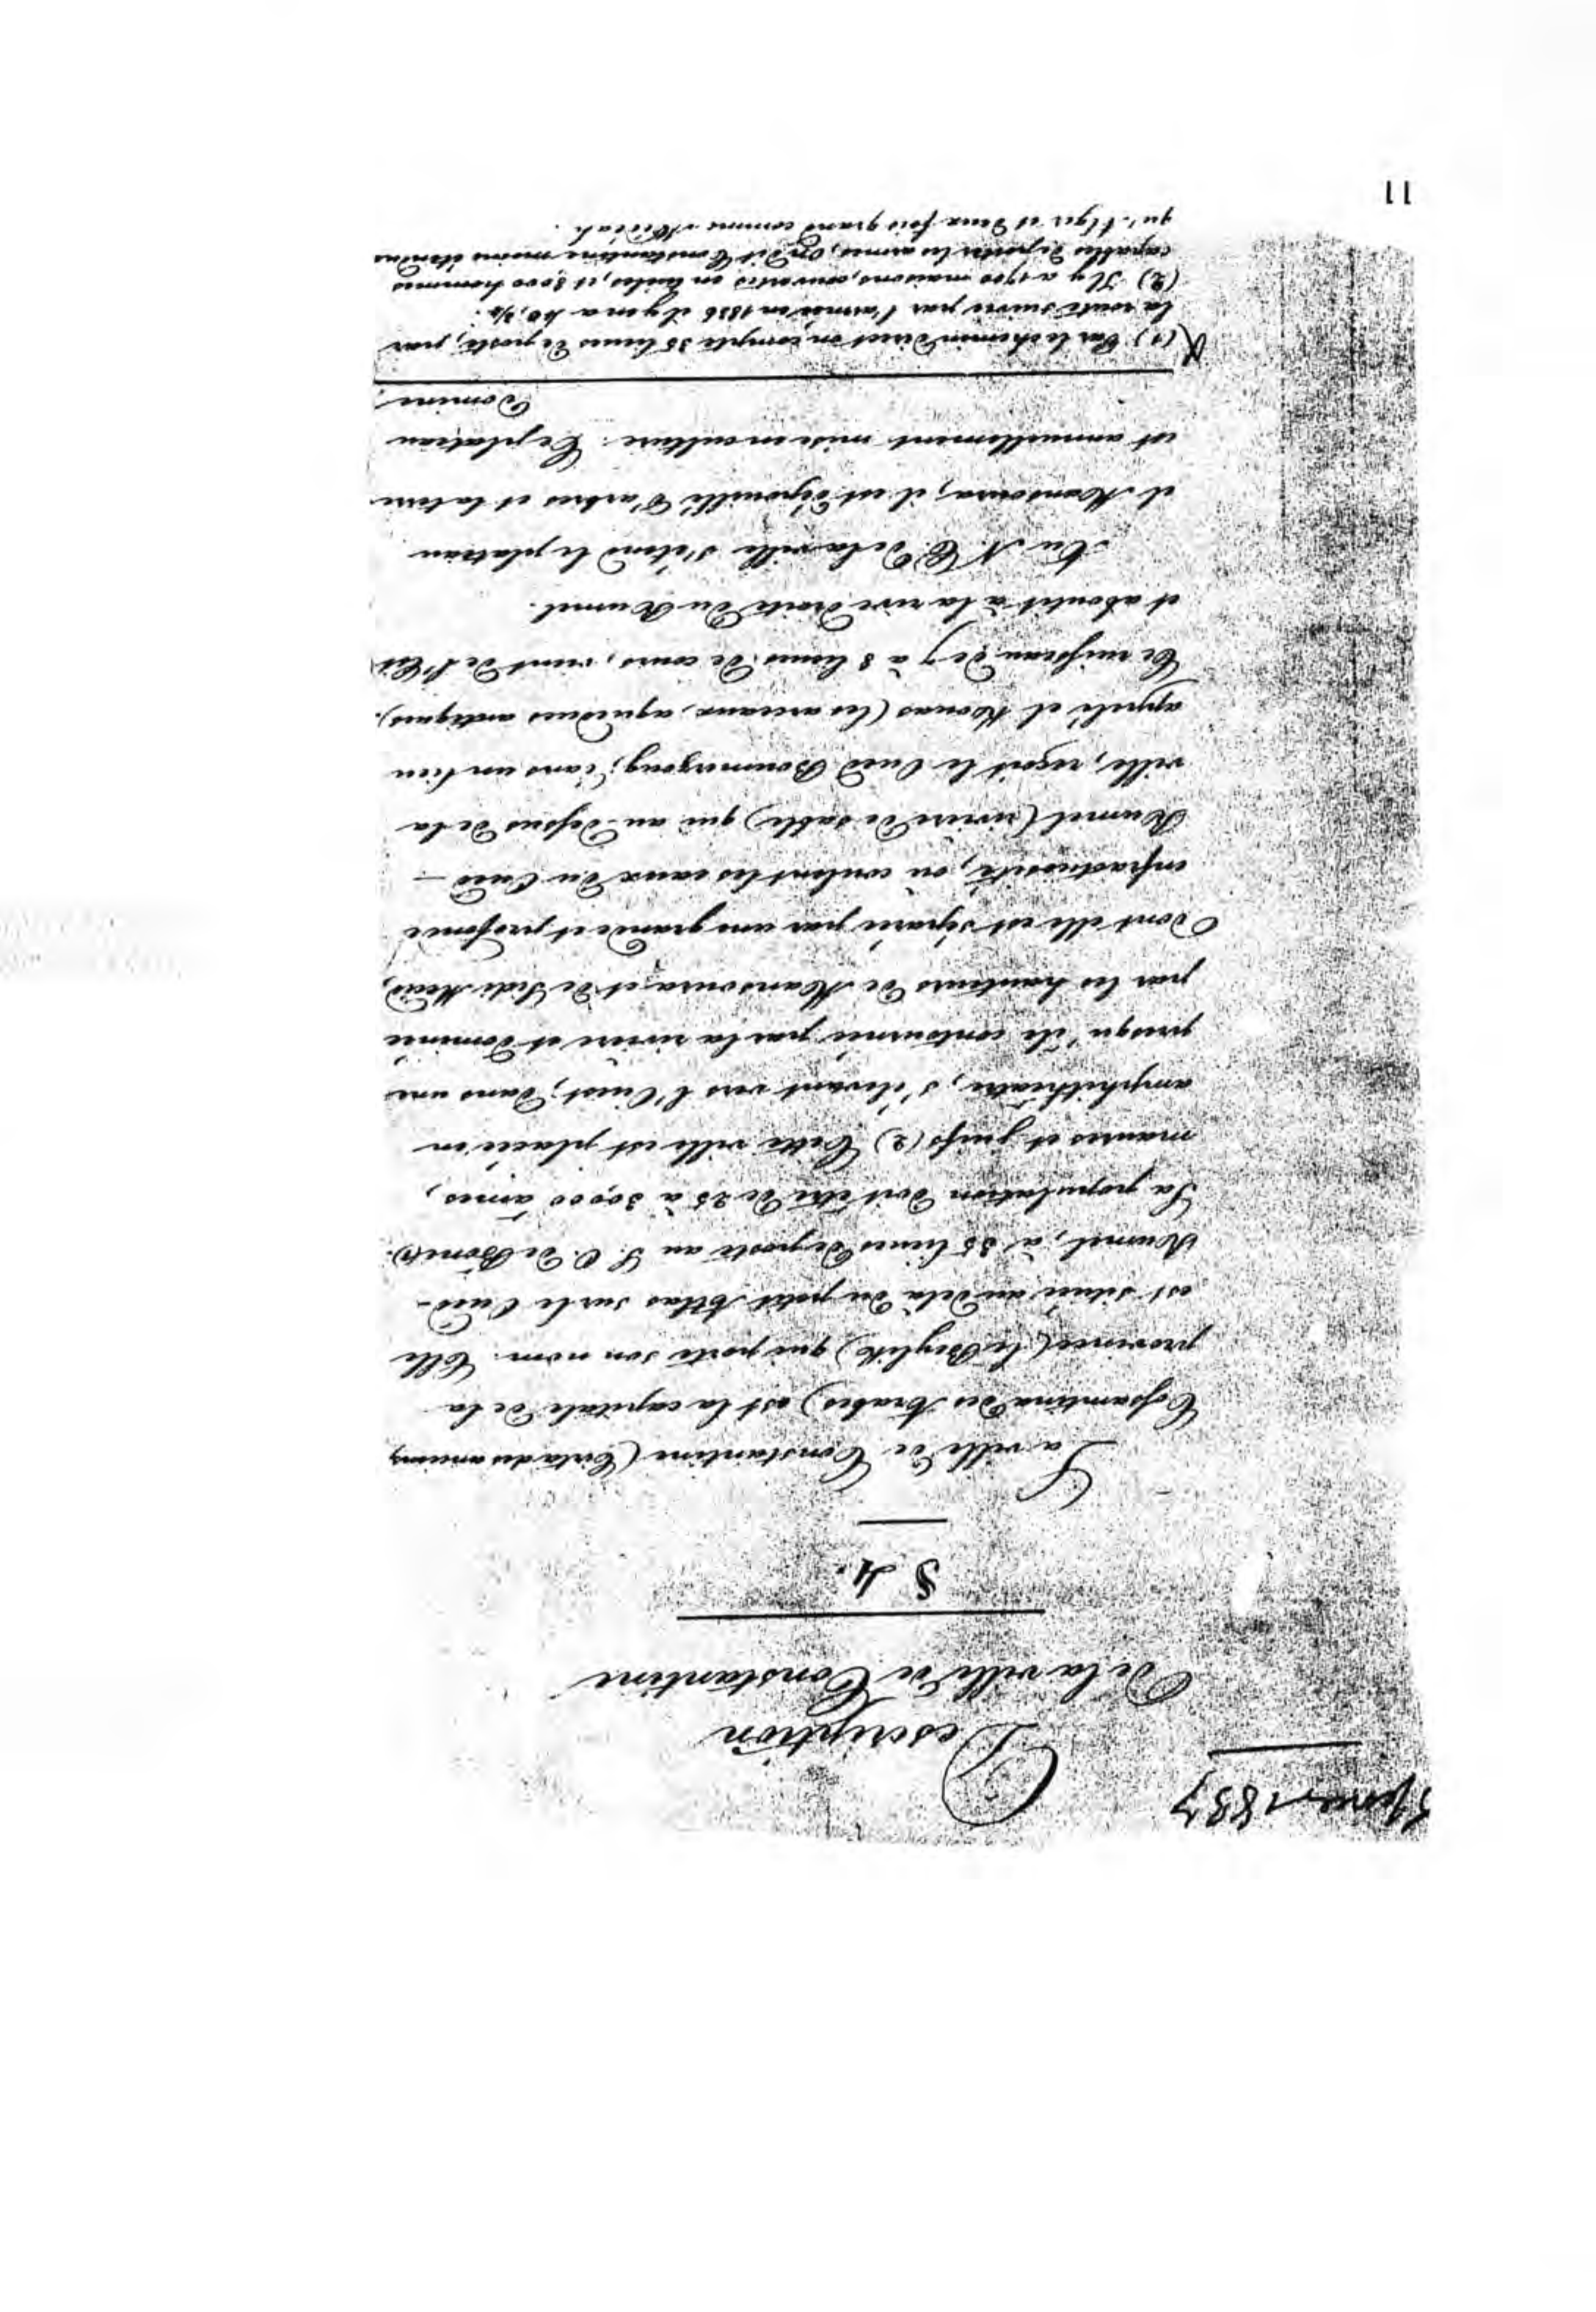 1837
Description
De la ville de Constantine
§ 1.
La ville de Constantine (Cirta des anciens,
Cossantina des Arabes) est la capitale de la
province (le Beylik) qui porte son nom. Elle
est située au delà du petit Atlas sur le Oued-
Rummel, à 35 lieues de poste au S. O. de Bône (1).
Sa population doit être de 25 à 30,000 âmes,
maures et juifs (2) Cette ville est placée en
amphithéâtre, s'élevant vers l'Ouest, dans une
presqu'île contournée par la rivière et dominée
par les hauteurs de Mansoura et de Sidi Mecid,
dont elle est séparée par une grande et profonde
infractuosité, où coulent les eaux du Oued-
Rummel (rivière de sable) qui au-dessus de la
ville, reçoit le Oued Boumerzoug, dans un lieu
appelé el Kouas (les arceaux, aqueducs antiques).
Ce ruisseau de 7 à 8 lieues de cours, vient de l'Est
et aboutit à la rive droite du Rummel.
Au N. E. de la ville s'étend le plateau
d'el Mansoura, il est dépouillé d'arbres et la terre
est annuellement mise en culture. Ce plateau
domine
(1) Par le chemin direct on compte 35 lieues de poste, par
la route suivie par l'armée en 1836 il y en a 40, 3/4.
(2) Il y a 1700 maisons, couvertes en tuiles, et 8000 hommes
capables de porter les armes, on dit Constantine moins étendue
qu'Alger et deux fois grand comme Médéah.
11